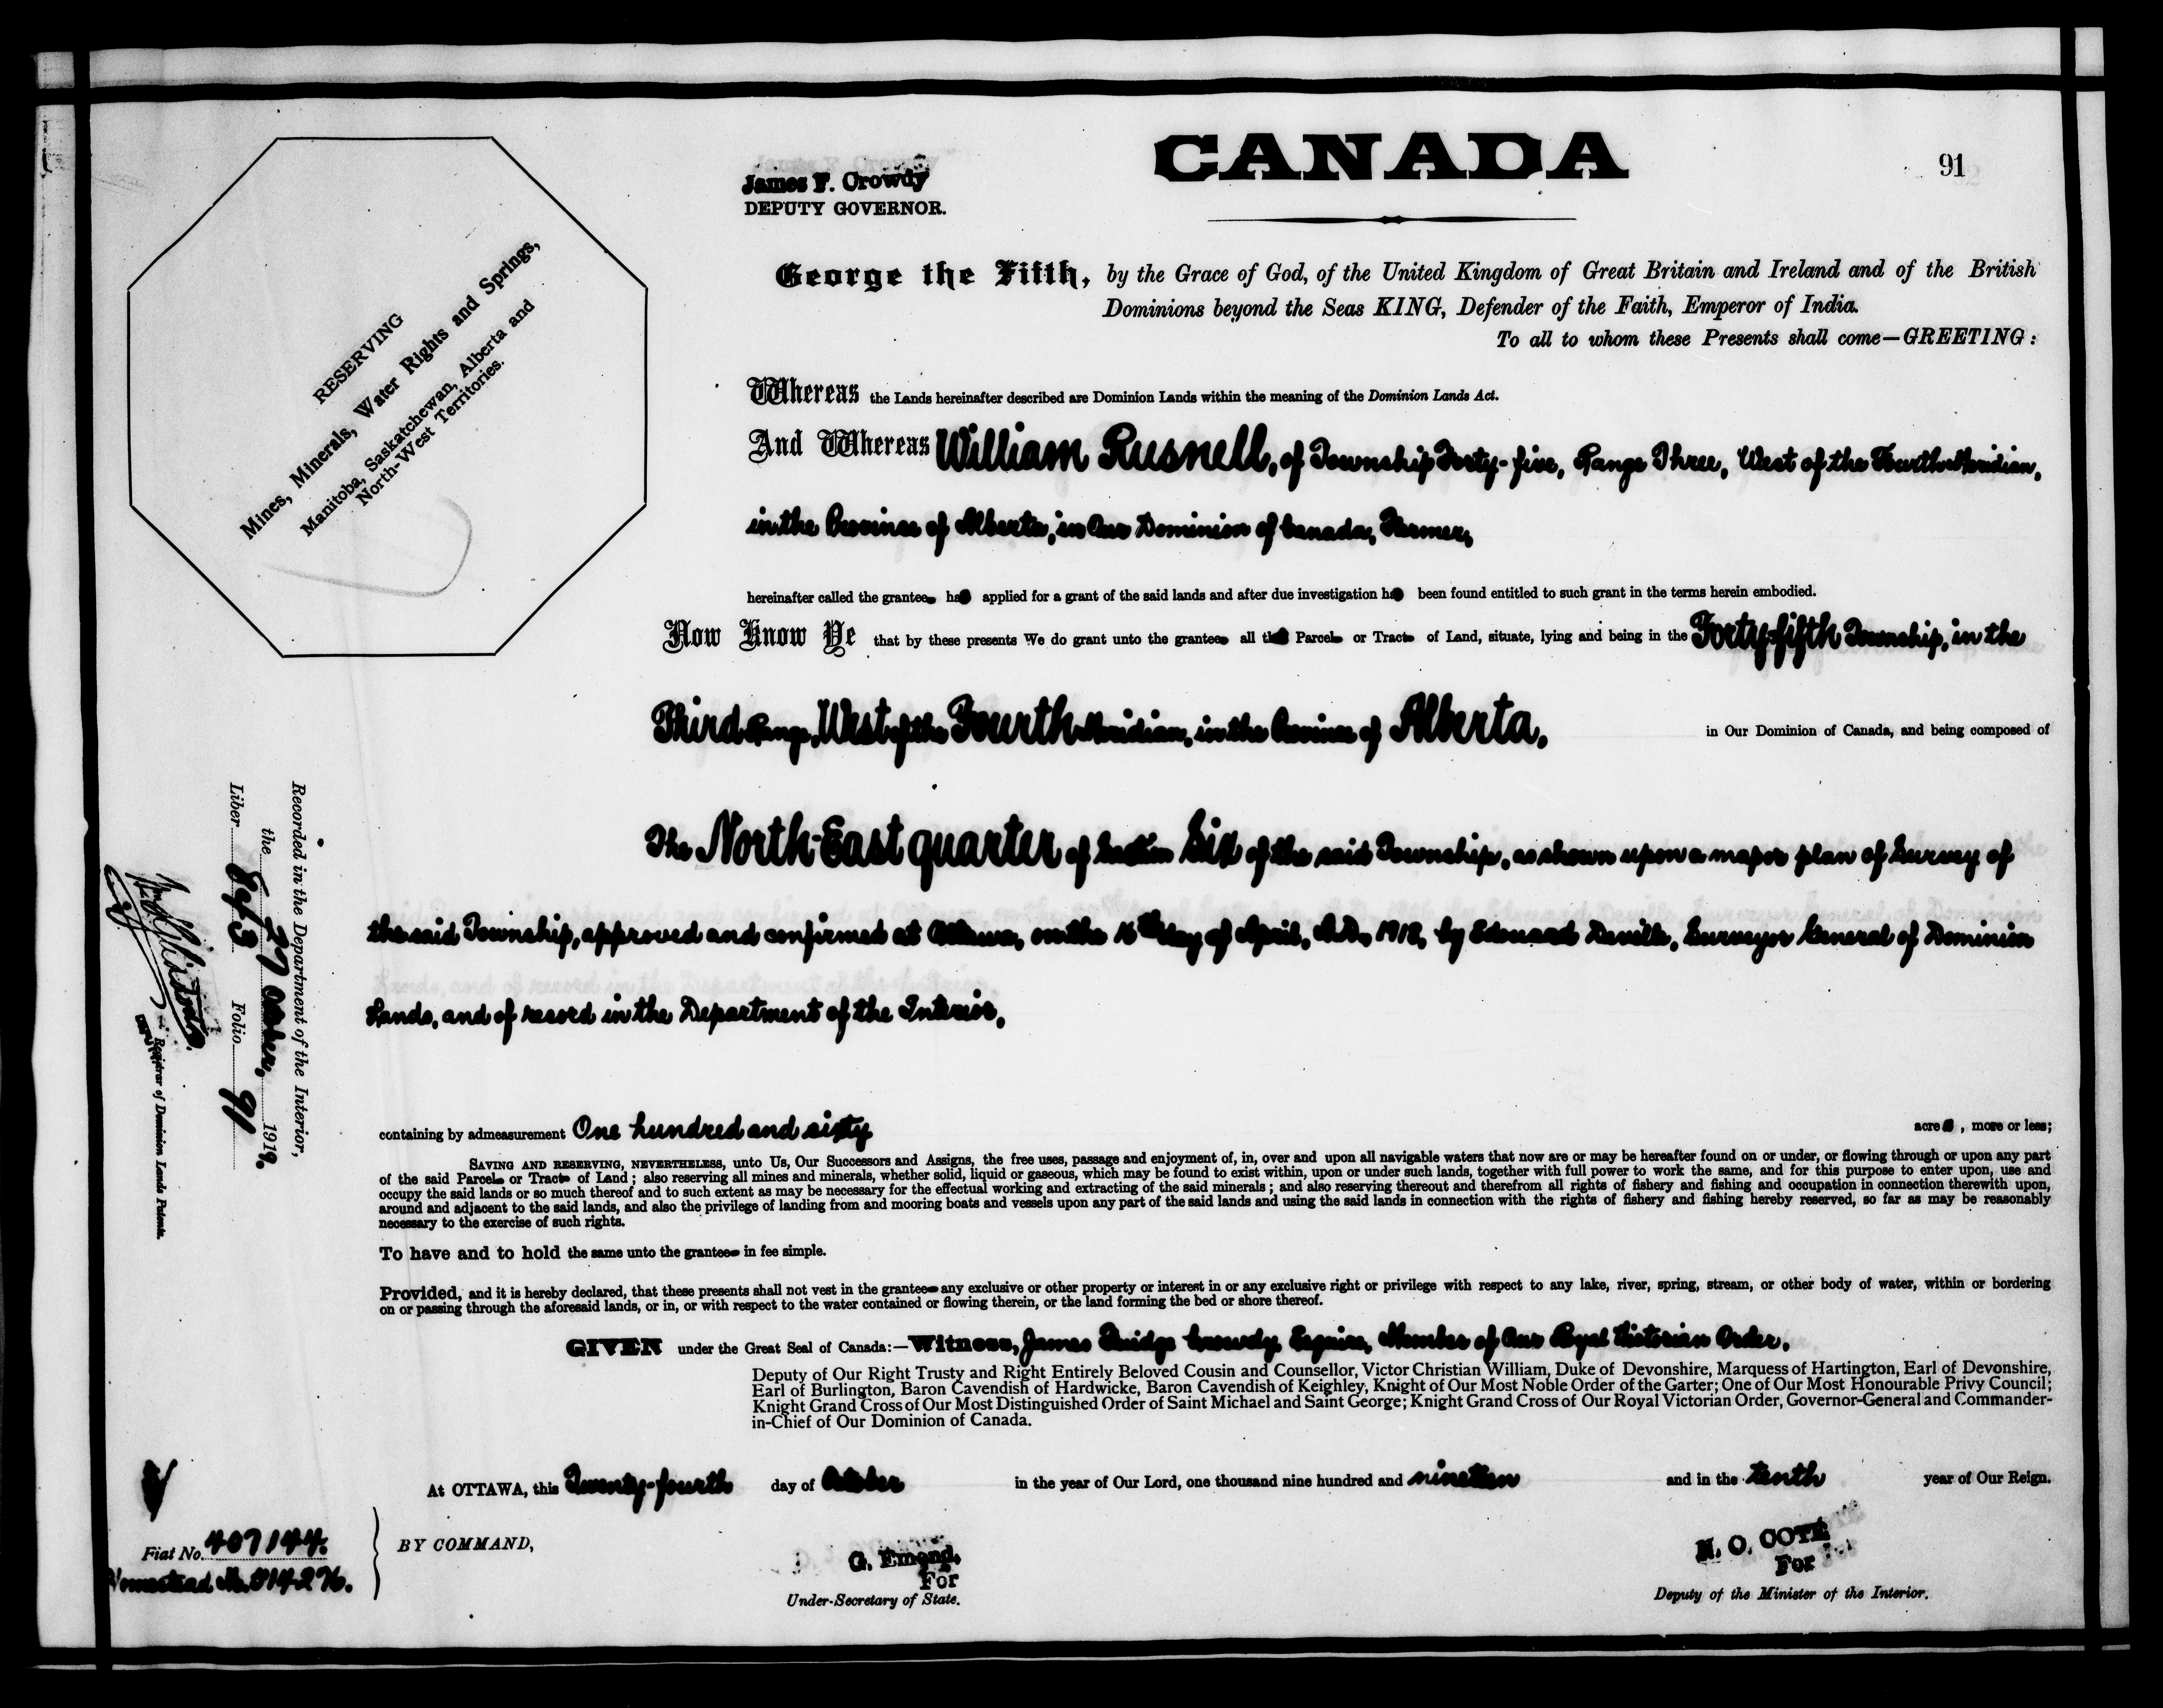 CANADA
91
James F. Crowdy
DEPUTY GOVERNOR.
RESERVING
Mines, Minerals, Water Rights and Springs,
Manitoba, Saskatchewan, Alberta and
North-West Territories.
George the Fifth, by the Grace of God, of the United Kingdom of Great Britain and Ireland and of the British
Dominions beyond the Seas KING, Defender of the Faith, Emperor of India.
To all to whom these Presents shall come—GREETING:
Whereas the Lands hereinafter described are Dominion Lands within the meaning of the Dominion Lands Act.
And Whereas William Rusnell, of Township Forty-five, Range Three, West of the Fourth Meridian,
in the Province of Alberta, in Our Dominion of Canada, Farmer,
hereinafter called the grantee ha applied for a grant of the said lands and after due investigation ha been found entitled to such grant in the terms herein embodied.
Now Know Ye that by these presents We do grant unto the grantee all th Parcel or Tract of Land, situate, lying and being in the Forty-fifth Township, in the
Third Range, West of the Fourth Meridian, in the Province of Alberta, in Our Dominion of Canada, and being composed of
The North-East quarter of Section Six of the said Township, as shown upon a map or plan of Survey of
the said Township, approved and confirmed at Ottawa, on the 16th day of April, A.D. 1918, by Edouard Deville, Surveyor General of Dominion
Lands, and of record in the Department of the Interior,
containing by admeasurement One hundred and sixty acre , more or less;
SAVING AND RESERVING, NEVERTHELESS, unto Us, Our Successors and Assigns, the free uses, passage and enjoyment of, in, over and upon all navigable waters that now are or may be hereafter found on or under, or flowing through or upon any part
of the said Parcel or Tract of Land; also reserving all mines and minerals, whether solid, liquid or gaseous, which may be found to exist within, upon or under such lands, together with full power to work the same, and for this purpose to enter upon, use and
occupy the said lands or so much thereof and to such extent as may be necessary for the effectual working and extracting of the said minerals; and also reserving thereout and therefrom all rights of fishery and fishing and occupation in connection therewith upon,
around and adjacent to the said lands, and also the privilege of landing from and mooring boats and vessels upon any part of the said lands and using the said lands in connection with the rights of fishery and fishing hereby reserved, so far as may be reasonably
necessary to the exercise of such rights.
To have and to hold the same unto the grantee in fee simple.
Provided, and it is hereby declared, that these presents shall not vest in the grantee any exclusive or other property or interest in or any exclusive right or privilege with respect to any lake, river, spring, stream, or other body of water, within or bordering
on or passing through the aforesaid lands, or in, or with respect to the water contained or flowing therein, or the land forming the bed or shore thereof.
GIVEN under the Great Seal of Canada:—Witness, James Fluidge Crowdy, Esquire, Member of Our Royal Victorian Order,
Deputy of Our Right Trusty and Right Entirely Beloved Cousin and Counsellor, Victor Christian William, Duke of Devonshire, Marquess of Hartington, Earl of Devonshire,
Earl of Burlington, Baron Cavendish of Hardwicke, Baron Cavendish of Keighley, Knight of Our Most Noble Order of the Garter; One of Our Most Honourable Privy Council;
Knight Grand Cross of Our Most Distinguished Order of Saint Michael and Saint George; Knight Grand Cross of Our Royal Victorian Order, Governor-General and Commander-
in-Chief of Our Dominion of Canada.
At OTTAWA, this Twenty-fourth day of October in the year of Our Lord, one thousand nine hundred and nineteen and in the tenth year of Our Reign.
BY COMMAND,
G. Emond,
For
Under-Secretary of State.
N. O. COTE
For
Deputy of the Minister of the Interior.
Recorded in the Department of the Interior,
the 27 October, 1919.
Liber Folio 91
Registrar of Dominion Lands Patents.
Fiat No. 407144.
Homestead No.